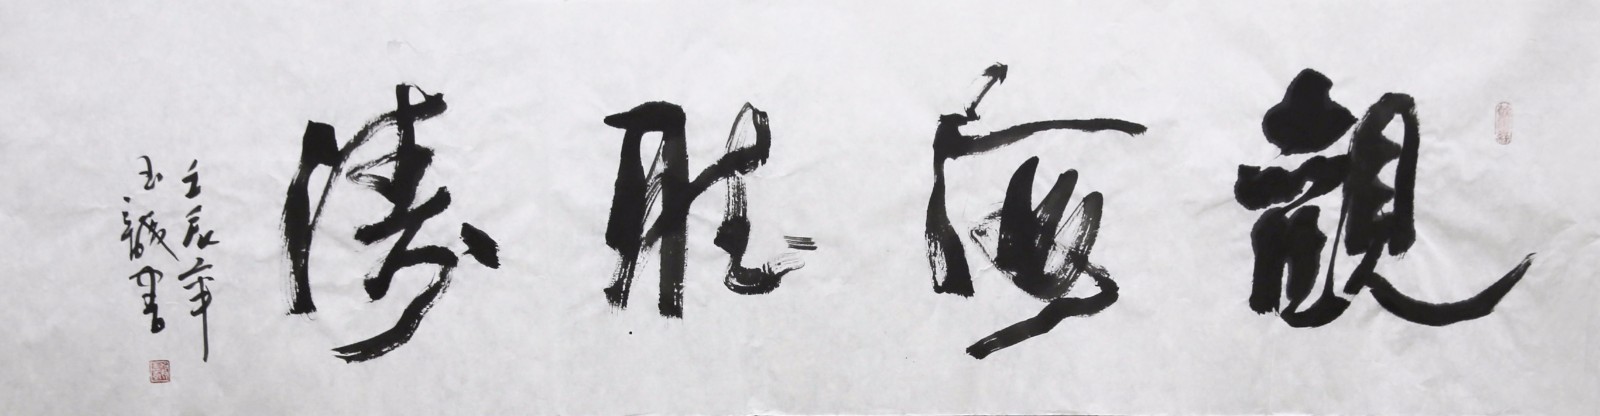 觀海聽濤
壬辰年
玉誠書